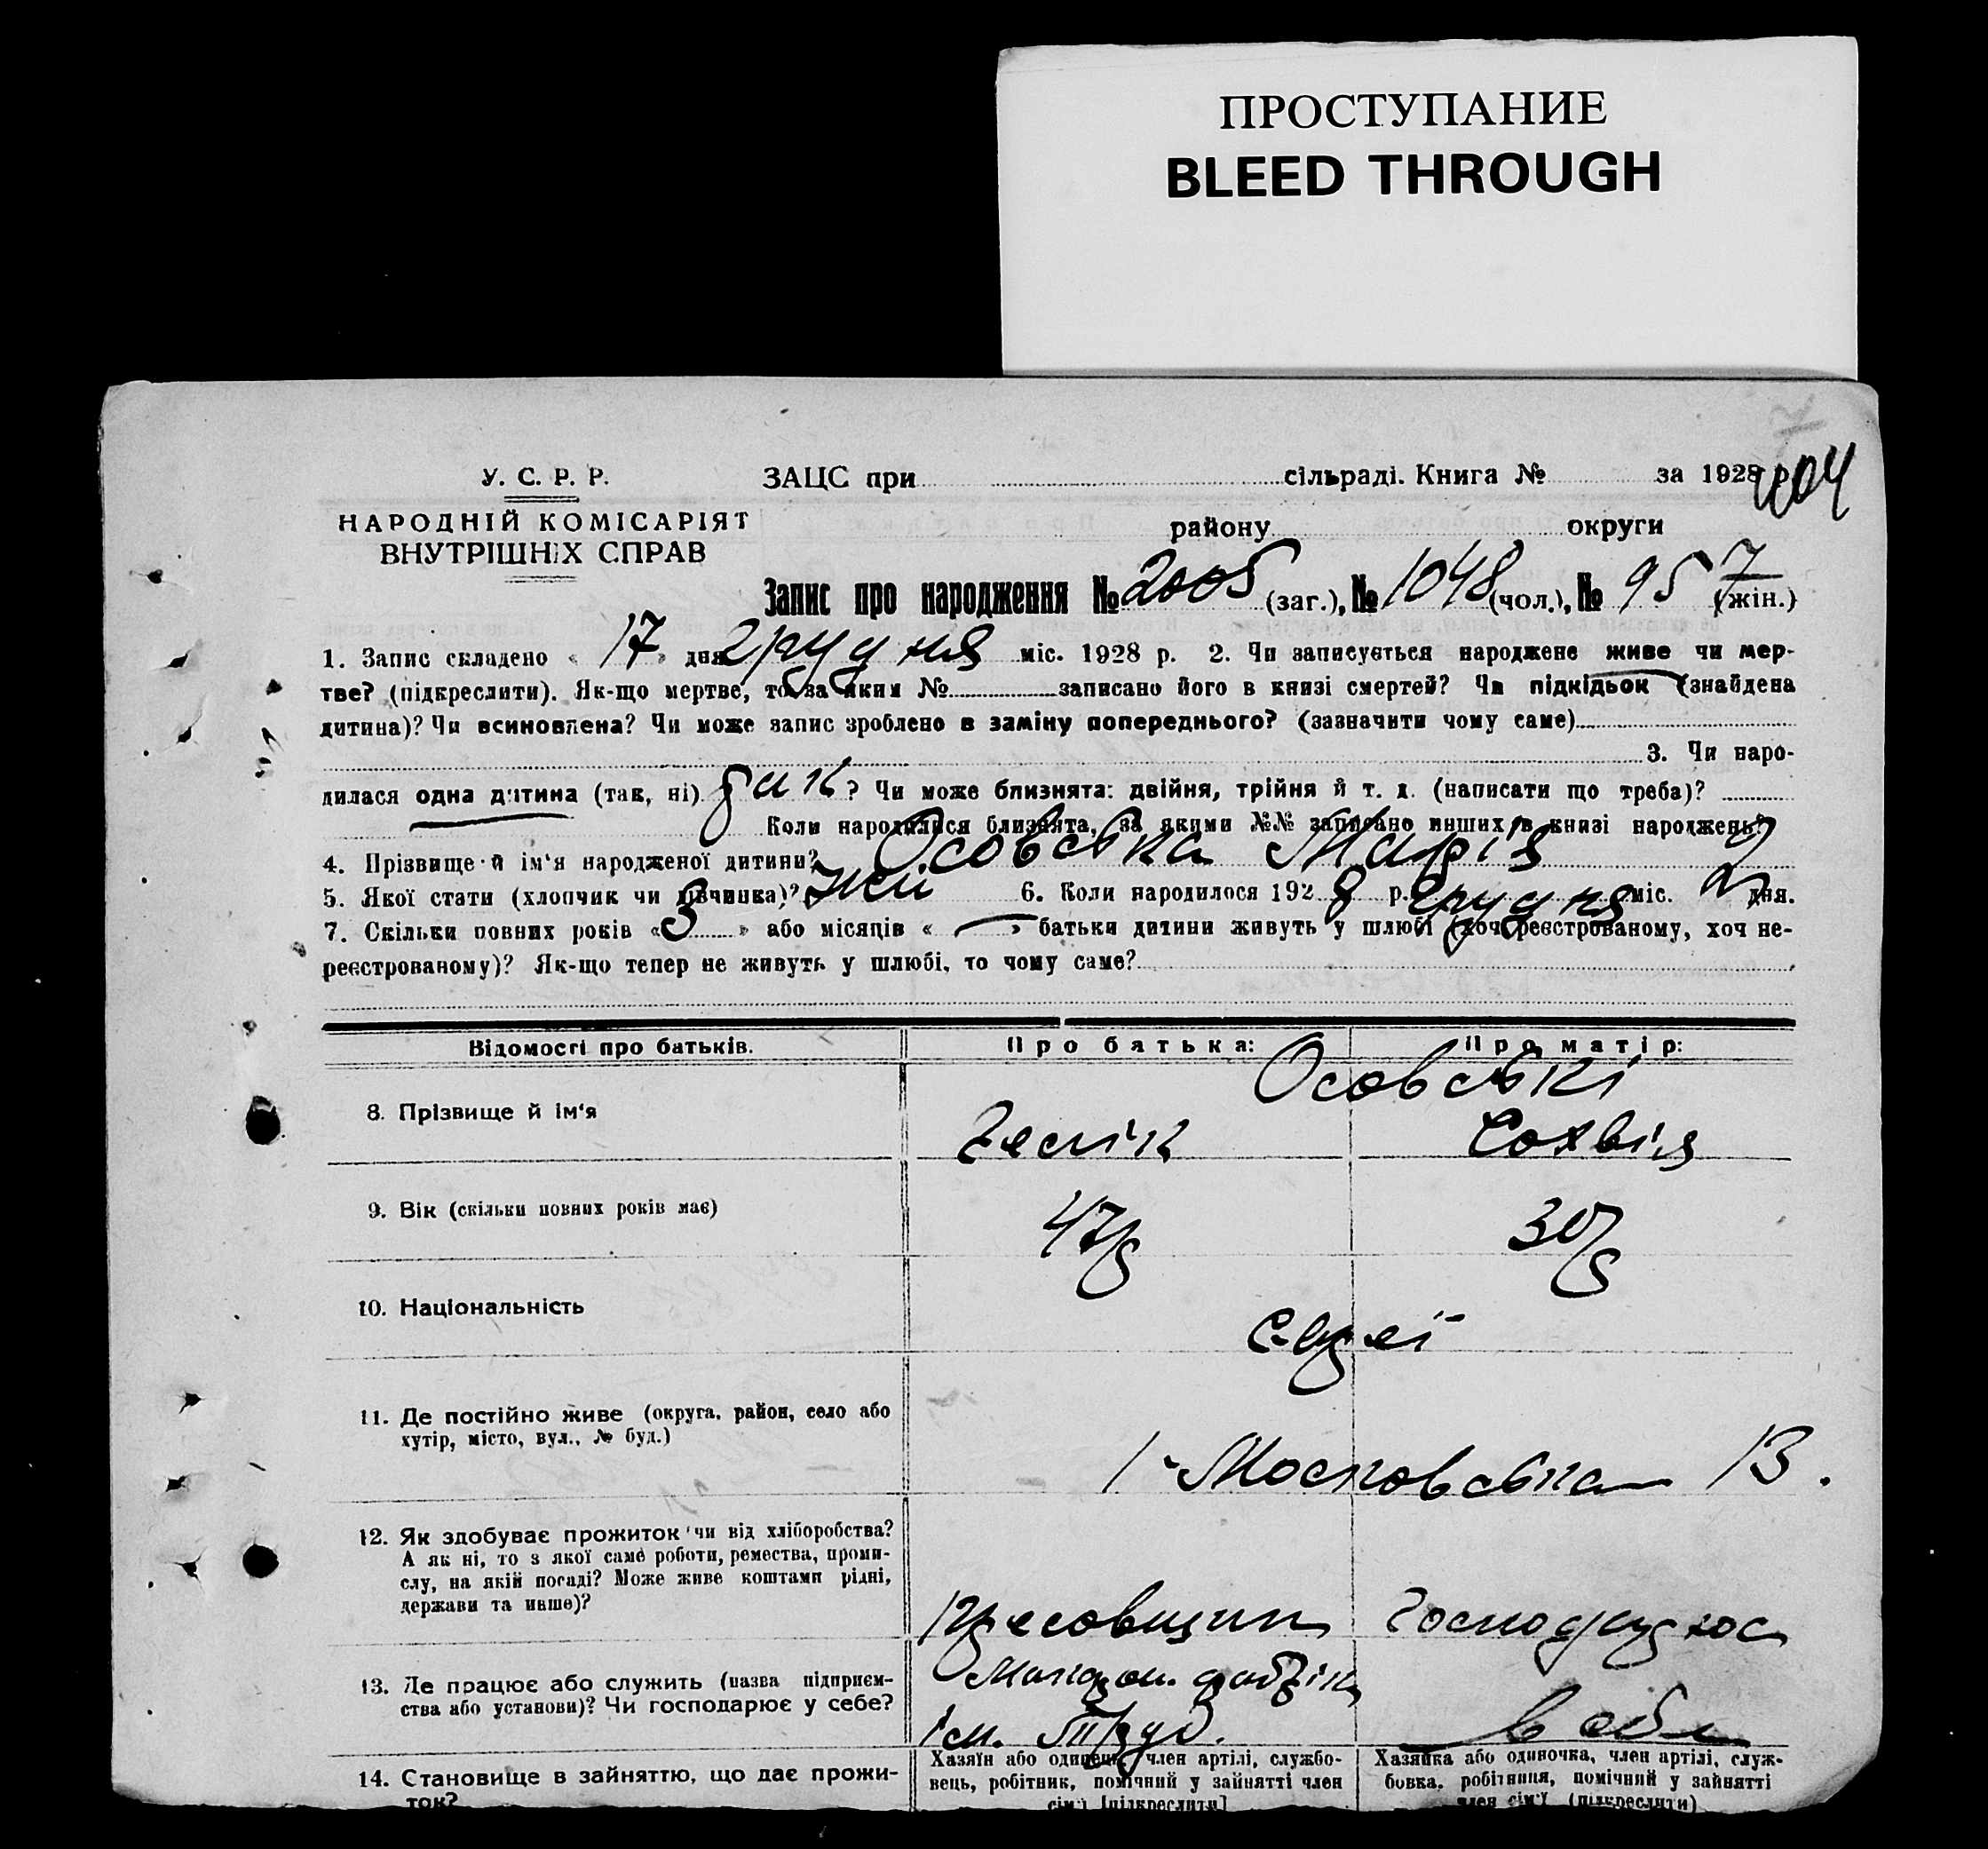 ПРОСТУПАНИЕ
BLEED THROUGH
У. С. Р. Р.
НАРОДНІЙ КОМІСАРІЯТ
ВНУТРІШНІХ СПРАВ
ЗАЦС при сільраді. Книга № за 1928 р.
району округи
Запис про народження № 2005 (заг.), № 1048 (чол.), № 957 (жін.)
1. Запис складено « 17 » дня грудня міс. 1928 р. 2. Чи записується народжене живе чи мер-
тве? (підкреслити). Як-що мертве, то за яким № записано його в книзі смертей? Чи підкідьок (знайдена
дитина)? Чи всиновлена? Чи може запис зроблено в заміну попереднього? (зазначити чому саме)
3. Чи наро-
дилася одна дитина (так, ні) так? Чи може близнята: двійня, трійня й т. д. (написати що треба)?
Коли народилися близнята, за якими №№ записано инших в книзі народжень?
4. Прізвище й ім'я народженої дитини? Осовська Марія
5. Якої стати (хлопчик чи дівчинка)? жін 6. Коли народилося 1928 р. грудня міс. 2 дня.
7. Скільки повних років « 3 » або місяців « — » батьки дитини живуть у шлюбі (хоч реєстрованому, хоч не-
реєстрованому)? Як-що тепер не живуть у шлюбі, то чому саме?
Відомості про батьків. Про батька: Про матір:
Осовські
8. Прізвище й ім'я Сохвія
9. Вік (скільки повних років має) 47р 30р
10. Національність Євреї
11. Де постійно живе (округа, район, село або
хутір, місто, вул., № буд.)
1-Московська 13.
12. Як здобуває прожиток чи від хліборобства?
А як ні, то з якої саме роботи, ремества, проми-
слу, на якій посаді? Може живе коштами рідні,
держави та инше)?
Пресовщик
13. Де працює або служить (назва підприєм-
ства або установи)? Чи господарює у себе?
фабрік
ім. Труд.
в себе
14. Становище в зайняттю, що дає прожи-
ток?
Хазяїн або одинець, член артілі, службо-
вець, робітник, помічний у зайнятті член
сім'ї [підкреслити]
Хазяйка або одиночка, член артілі, служ-
бовка, робітниця, помічний у зайнятті
член сім'ї (підкреслити)